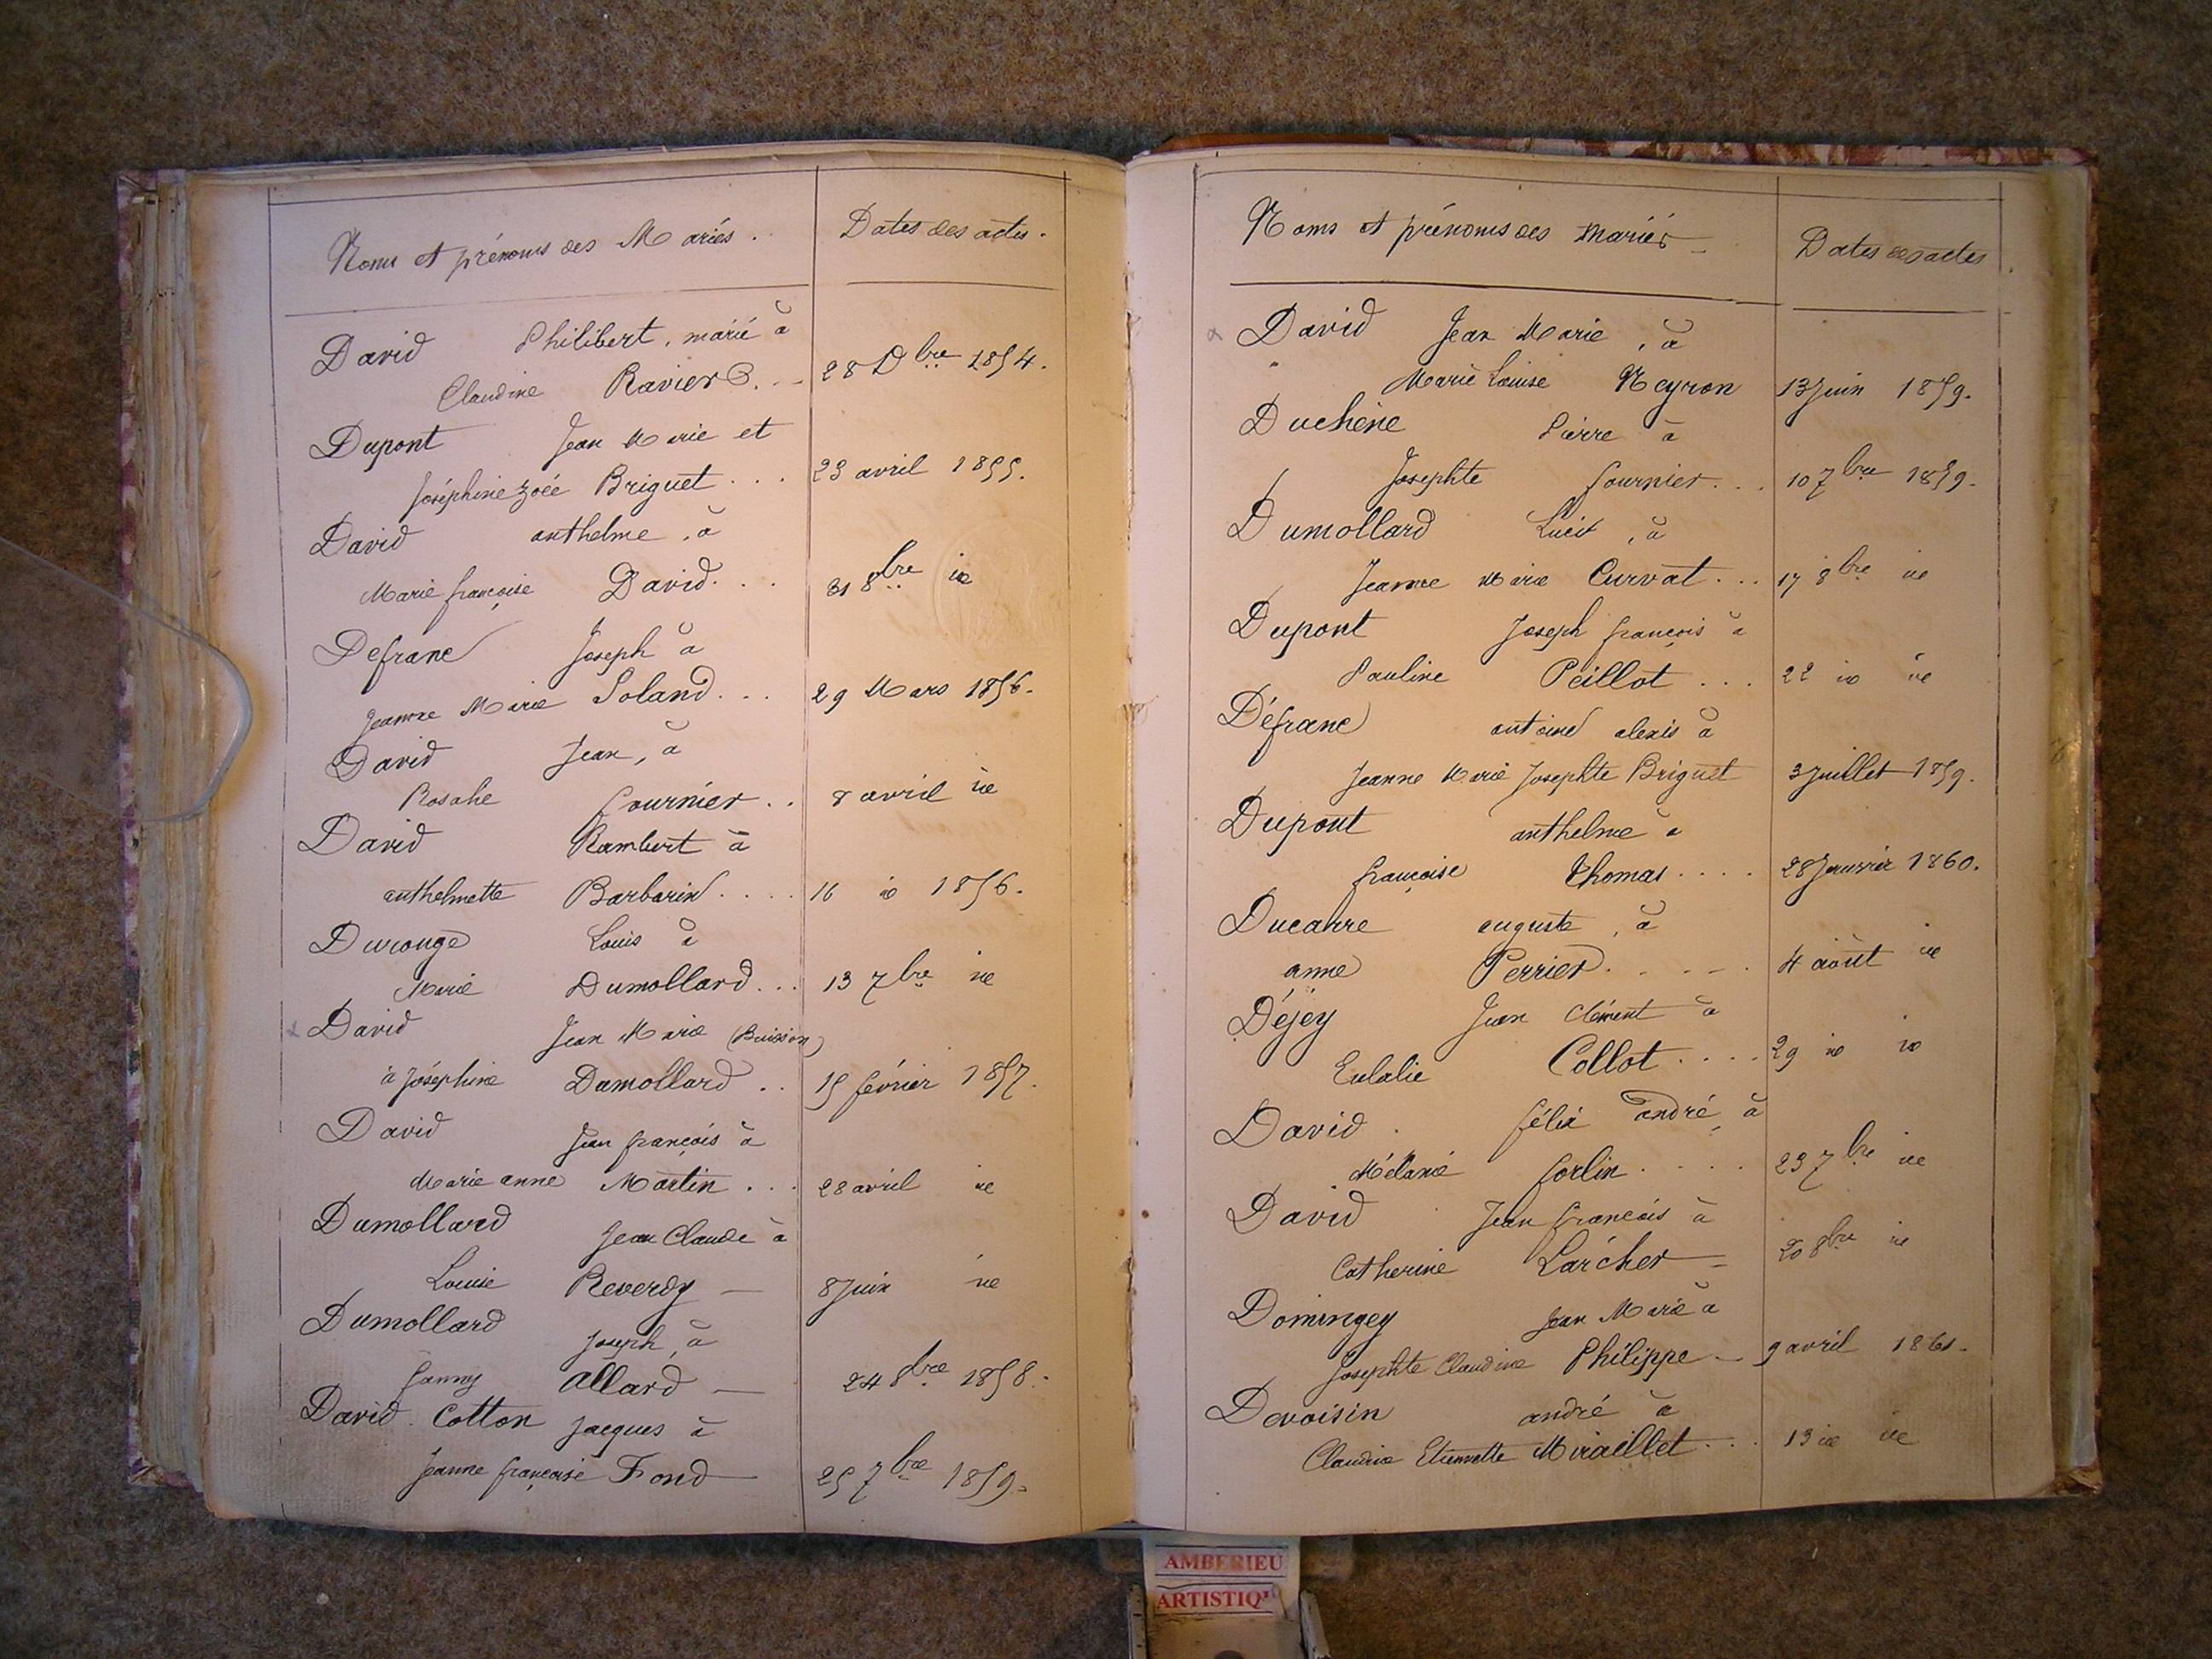 Noms et prénoms des Mariés. Dates des actes.
David Philibert, marié à
Claudine Ravier. 28 Dbre 1854.
Dupont Jean Marie et
Joséphine Zoée Briguet... 23 avril 1855.
David anthelme, à
Marie françoise David... 31 8bre ie
Defranc Joseph à
Jeanne Marie Soland... 29 Mars 1856.
David Jean, à
Rosalie fournier.. 8 avril ie
David Rambert à
anthelmette Barbarin.... 16 ie 1856.
Durouge Louis à
Marie Dumollard... 13 7bre ie
David Jean Marie (Buisson)
à Joséphine Dumollard.. 15 février 1857.
David Jean françois à
Marie anne Martin... 28 avril ie
Dumollard Jean Claude à
Louise Reverdy — 8 Juin ie
Dumollard Joseph, à
fanny allard — 24 8bre 1858.
David. Cotton Jacques à
Jeanne françoise Fond — 25 7bre 1859.
Noms et prénoms des mariés Dates des actes
David Jean Marie, à
Marie Louise Neyron 13 Juin 1859.
Duchène Pierre à
Josephte fournier... 10 7bre 1859.
Dumollard à
Jeanne Marie Curvat... 17 8bre ie
Dupont Joseph françois à
Pauline Peillot... 22 ie ie
Défranc antoine alexis à
Jeanne Marie Josephte Briguet 3 Juillet 1859.
Dupont anthelme à
françoise Thomas.... 28 Janvier 1860.
Ducarre auguste, à
anne Perrier..... 4 août ie
Déjey Jean Clément à
Eulalie Collot.... 29 ie ie
David. félix andré, à
Mélanie forlin.... 23 7bre ie
David Jean francois à
Catherine Larcher — 20 8bre ie
Domingey Jean Marie à
Josephte Claudine Philippe — 9 avril 1861.
Devoisin andré à
Claudine Etiennette Miraillet... 13 ie ie
AMBERIEU
ARTISTIQ